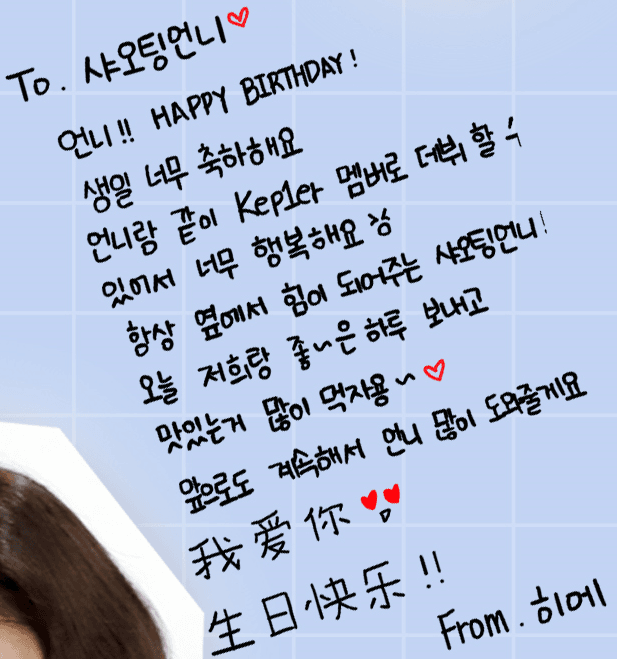 To. 샤오팅언니♡
언니!! HAPPY BIRTHDAY!
생일 너무 축하해요
언니랑 같이 Kep1er 멤버로 데뷔 할 수
있어서 너무 행복해요
항상 옆에서 힘이 되어주는 샤오팅언니!
오늘 저희랑 좋~은 하루 보내고
맛있는거 많이 먹자용~♡
앞으로도 계속해서 언니 많이 도와줄게요
我爱你♥♥
生日快乐!!
From. 히에